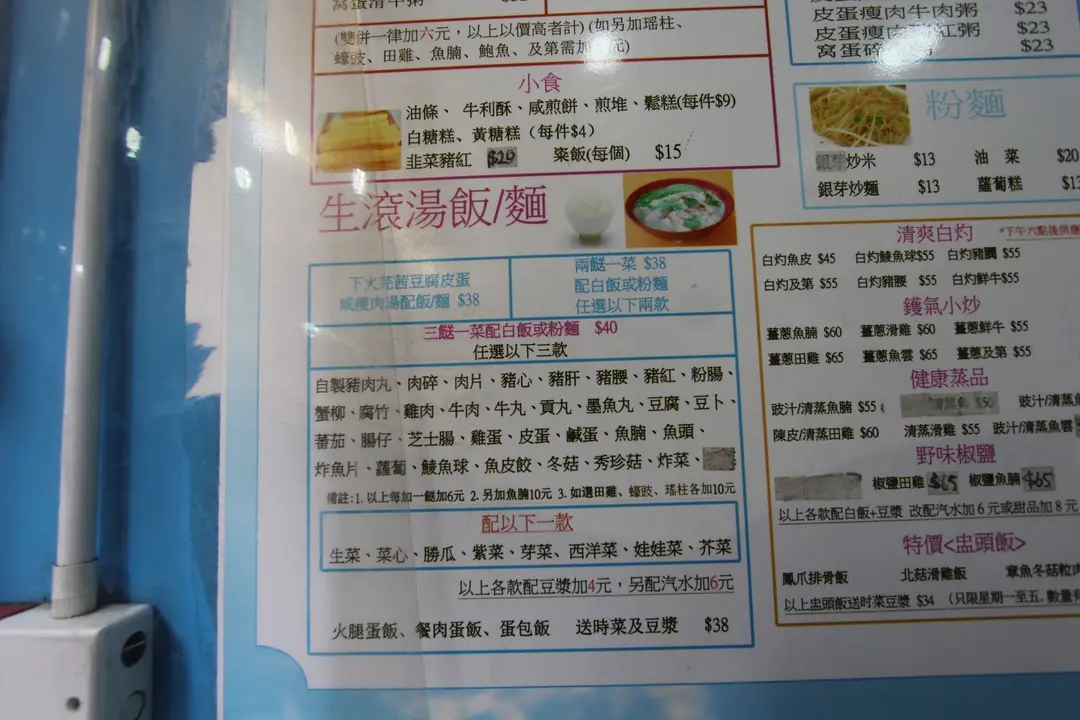 (雙併一律加六元，以上以價高者計) (如另加瑤柱、
蠔豉、田雞、魚腩、鮑魚、及第需加 元)
小食
油條、 牛利酥、咸煎餅、煎堆、鬆糕(每件$9)
白糖糕、黃糖糕 (每件$4)
韭菜豬紅 $20 粢飯(每個) $15
生滾湯飯/麵
下火芫茜豆腐皮蛋
咸瘦肉湯配飯/麵 $38
兩餸一菜 $38
配白飯或粉麵
任選以下兩款
三餸一菜配白飯或粉麵 $40
任選以下三款
自製豬肉丸、肉碎、肉片、豬心、豬肝、豬腰、豬紅、粉腸、
蟹柳、腐竹、雞肉、牛肉、牛丸、貢丸、墨魚丸、豆腐、豆卜、
蕃茄、腸仔、芝士腸、雞蛋、皮蛋、鹹蛋、魚腩、魚頭、
炸魚片、蘿蔔、鯪魚球、魚皮餃、冬菇、秀珍菇、炸菜、
備註:1. 以上每加一餸加6元 2. 另加魚腩10元 3. 如選田雞、蠔豉、瑤柱各加10元
配以下一款
生菜、菜心、勝瓜、紫菜、芽菜、西洋菜、娃娃菜、芥菜
以上各款配豆漿加4元，另配汽水加6元
火腿蛋飯、餐肉蛋飯、蛋包飯 送時菜及豆漿 $38
皮蛋瘦肉牛肉粥 $23
皮蛋瘦肉 紅粥 $23
窩蛋 $23
粉麵
銀芽炒米 $13 油 菜 $20
銀芽炒麵 $13 蘿蔔糕 $13
清爽白灼 *下午六點後供應
白灼魚皮 $45 白灼鯪魚球$55 白灼豬膶 $55
白灼及第 $55 白灼豬腰 $55 白灼鮮牛$55
鑊氣小炒
薑蔥魚腩 $60 薑蔥滑雞 $60 薑蔥鮮牛 $55
薑蔥田雞 $65 薑蔥魚雲 $65 薑蔥及第 $55
健康蒸品
豉汁/清蒸魚腩 $55 $50 豉汁/清蒸
陳皮/清蒸田雞 $60 清蒸滑雞 $55 豉汁/清蒸魚雲
野味椒鹽
椒鹽田雞 $65 椒鹽魚腩 $65
以上各款配白飯+豆漿 改配汽水加 6 元或甜品加 8 元
特價<盅頭飯>
鳳爪排骨飯 北菇滑雞飯 章魚冬菇粒肉
以上盅頭飯送時菜豆漿 $34 (只限星期一至五. 數量有